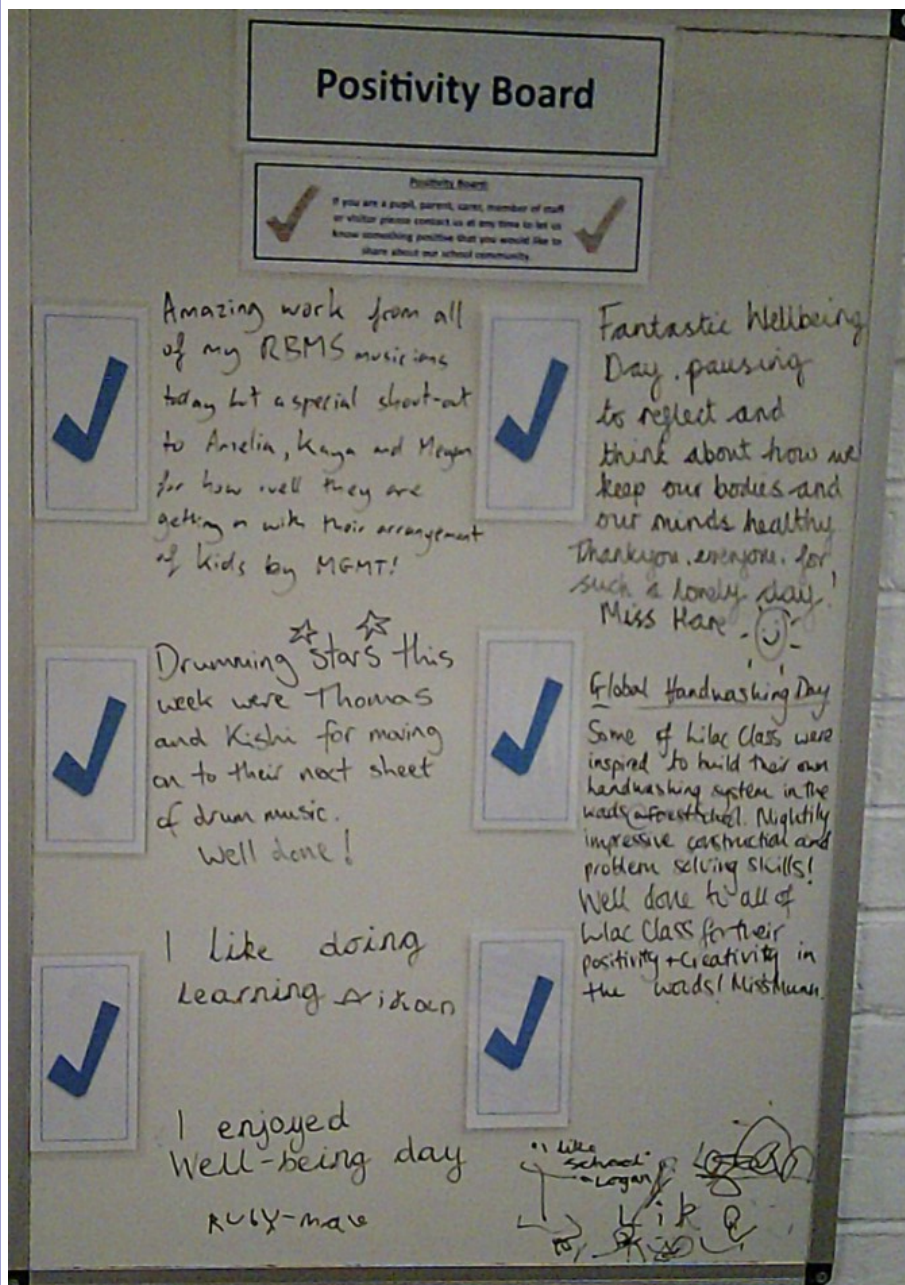 Positivity Board
Positivity Board
If you are a pupil, parent, carer, member of staff
or visitor please contact us at any time to let us
know something positive that you would like to
share about our school community.
Amazing work from all
of my RBMS musicians
today but a special shout-out
to Amelia, Kaya and Megan
for how well they are
getting on with their arrangement
of Kids by MGMT!
Drumming stars this
week were Thomas
and Kishi for moving
on to their next sheet
of drum music.
Well done!
I like doing
Learning
I enjoyed
Well-being day
Ruby-mae
Fantastic Wellbeing
Day, pausing
to reflect and
think about how we
keep our bodies and
our minds healthy
Thankyou, everyone, for
such a lovely day!
Miss Hare
Global Handwashing Day
Some of Lilac Class were
inspired to build their own
handwashing system in the
woods @ Forest School. Mightily
impressive construction and
problem solving skills!
Well done to all of
Lilac Class for their
positivity + creativity in
the woods! Miss
I like
school
Logan
Like